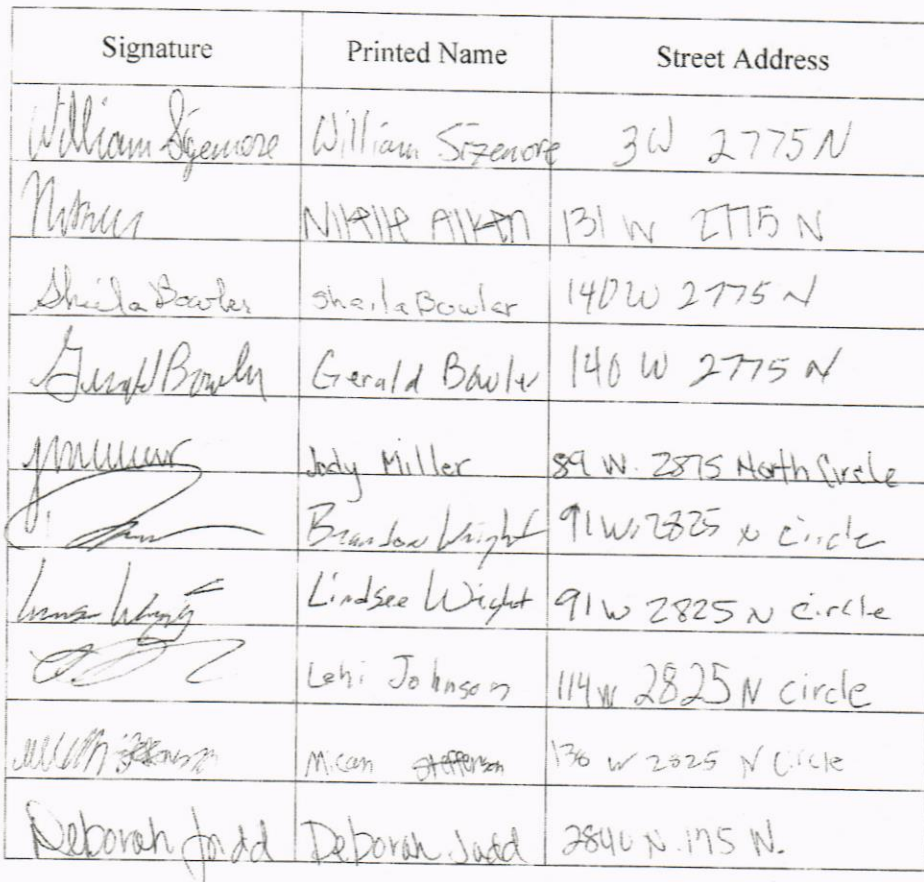 Signature Printed Name Street Address
William Sizemore William Sizemore 3W 2775 N
Nikelle Aiken 131 W 2775 N
Sheila Bowler Sheila Bowler 140 W 2775 N
Gerald Bowler Gerald Bowler 140 W 2775 N
Jody Miller 89 W. 2875 North Circle
Brandon Wright 91 W. 2825 N Circle
Lindsee Wight 91 W 2825 N Circle
Lehi Johnson 114 W 2825 N circle
Micah Steffenson 138 W 2825 N Circle
Deborah Judd Deborah Judd 2840 N. 175 W.